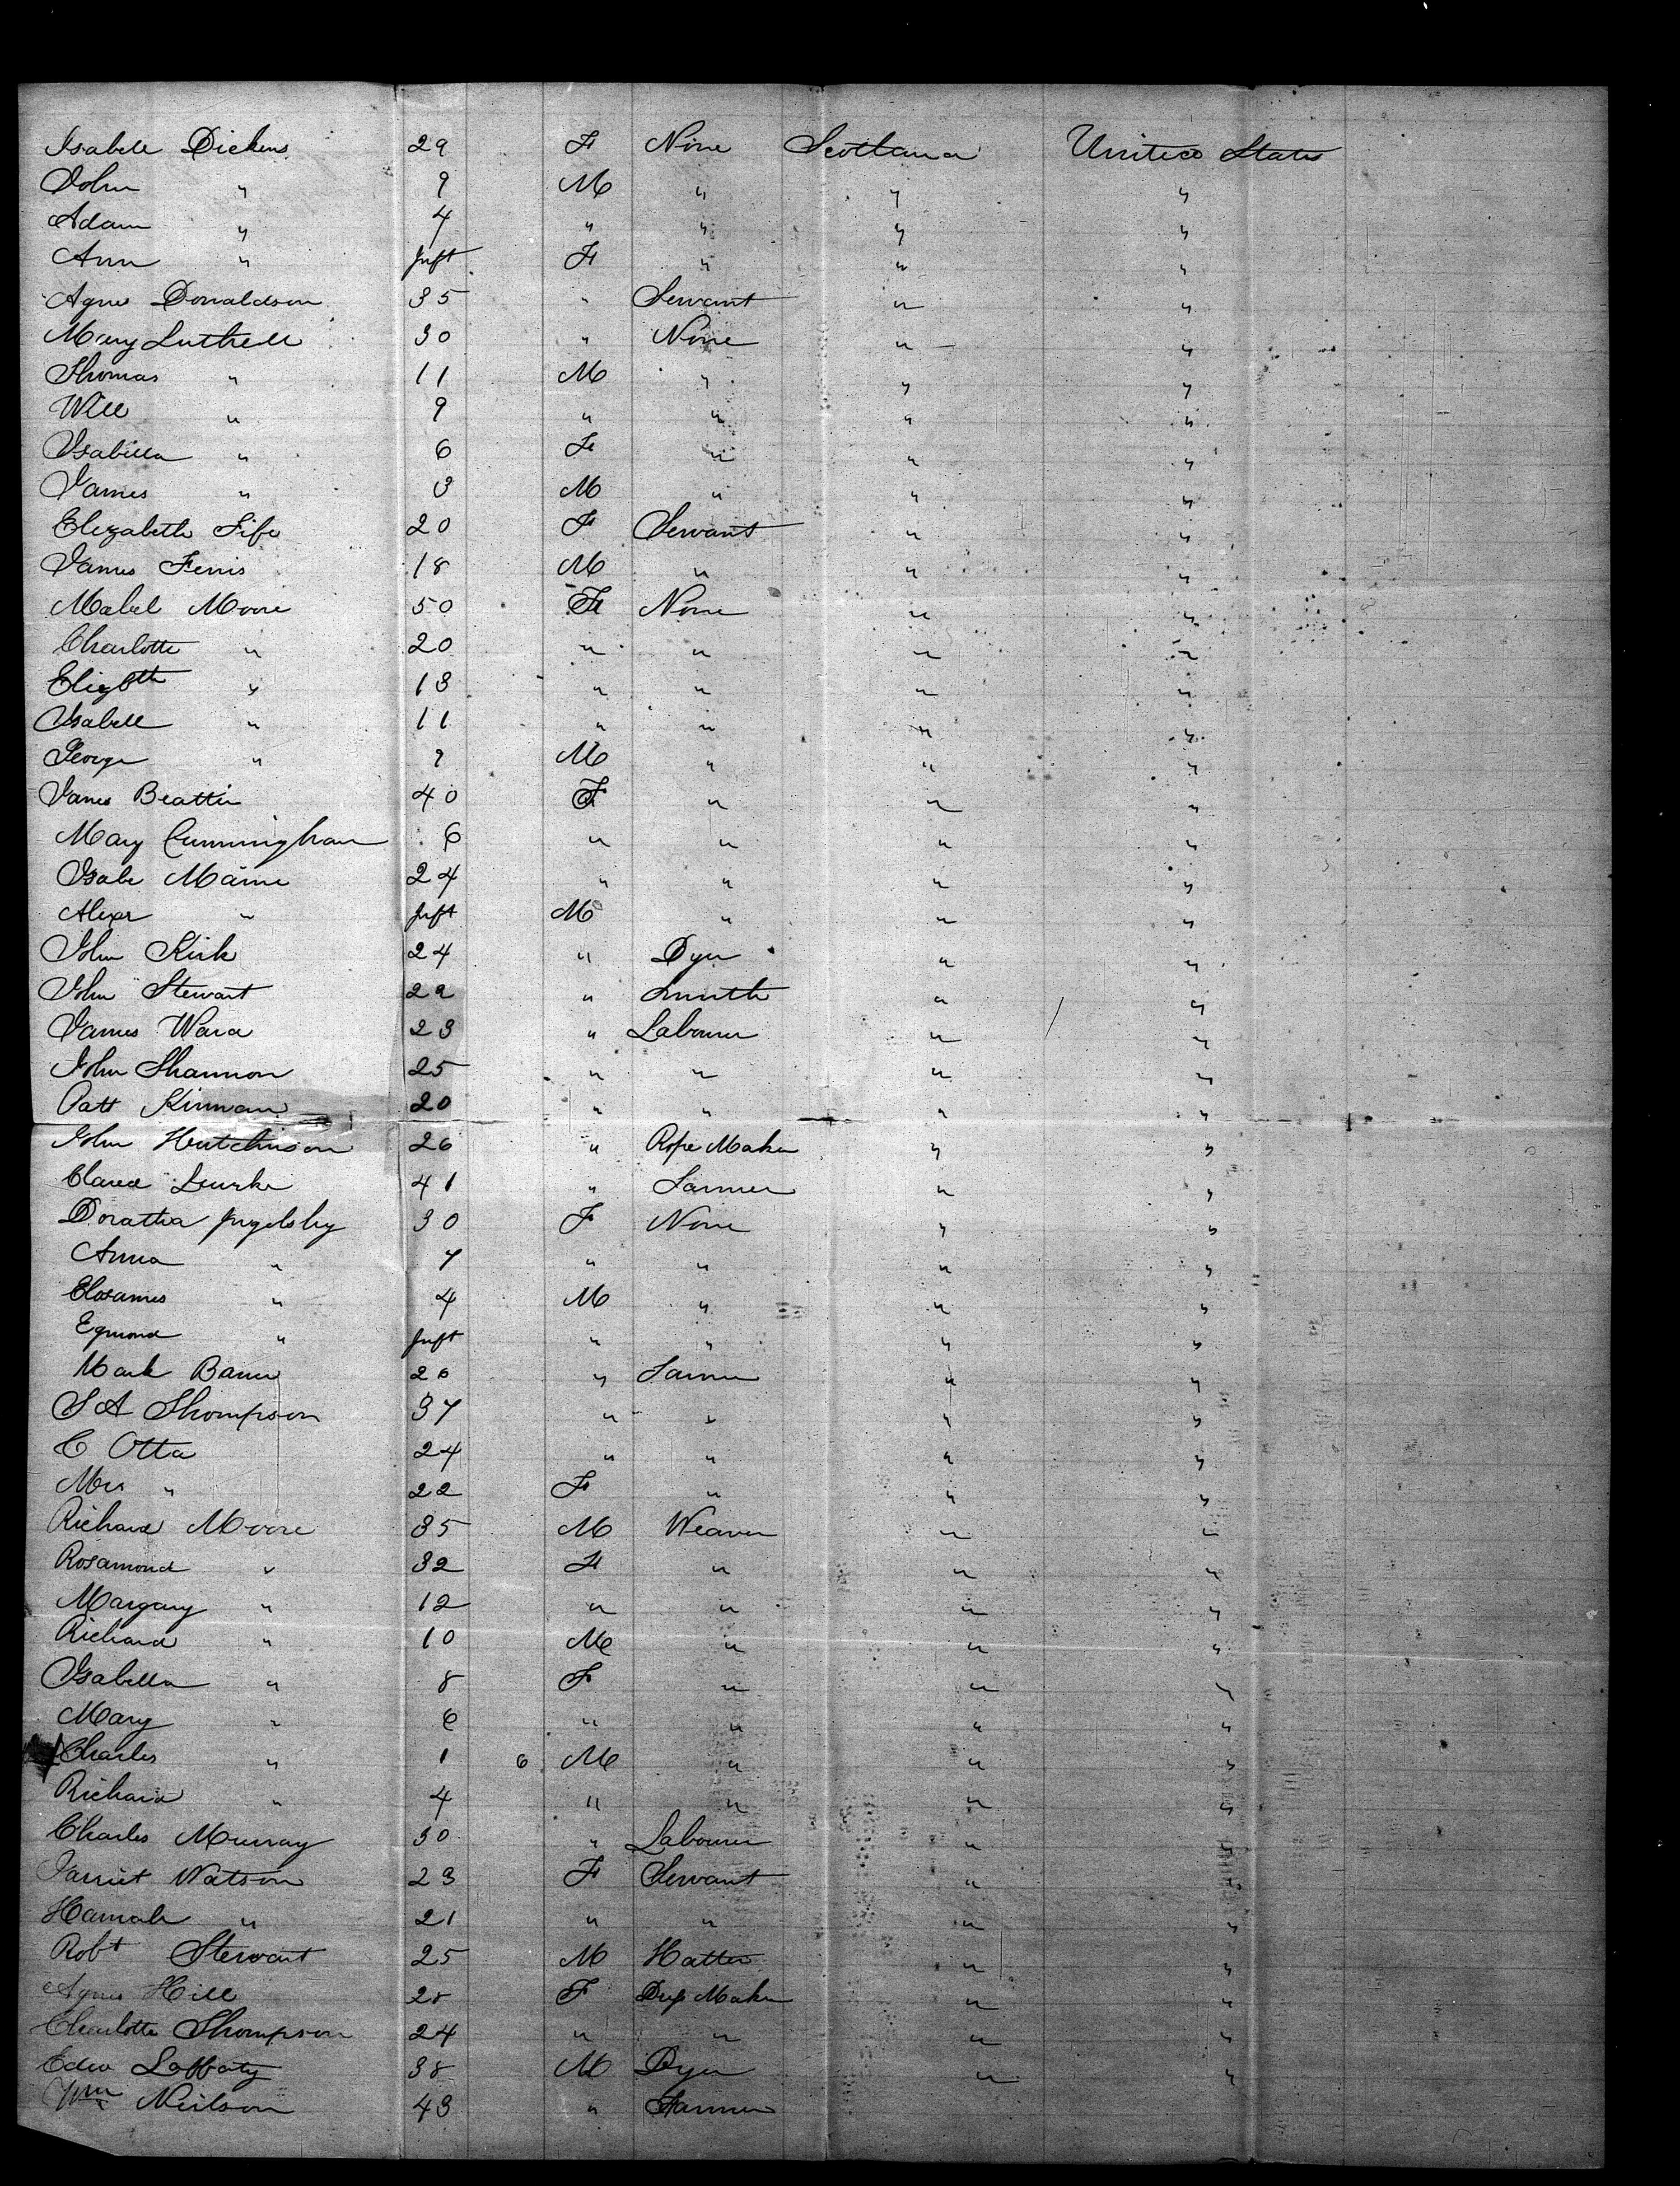 Isabell Dickens 29 F None Scotland United States
John " 9 M " " "
Adam " 4 " " " "
Ann " Inft F " " "
Agnes Donaldson 35 " Servant " "
Mary Luttrell 30 " None " "
Thomas " 11 M " " "
Will " 9 " " " "
Isabella " 6 F " " "
James " 3 M " " "
Elizabeth Fife 20 F Servant " "
James Ferris 18 M " " "
Mabel Moore 50 F None " "
Charlotte " 20 " " " "
Elizbth " 13 " " " "
Isabell " 11 " " " "
George " 9 M " " "
James Beattie 40 F " " "
Mary Cunningham 6 " " " "
Isabe 24 " " " "
Alexr " Inft M " " "
John Kirk 24 " Dyer " "
John Stewart 29 " Smith " "
James Ward 23 " Labourer " "
John Shannon 25 " " " "
Patt Kinnan 20 " " " "
John Hutchinson 26 " Rope Maker " "
41 " Farmer " "
Doratha Ingolsby 30 F None " "
Anna " 7 " " " "
" 4 M " " "
Egmond " Inft " " " "
Mark 26 " Farmer " "
S A Thompson 37 " " " "
C Otta 24 " " " "
Mrs " 22 F " " "
Richard Moore 35 M Weaver " "
Rosamond " 32 F " " "
Margary " 12 " " " "
Richard " 10 M " " "
Isabella " 8 F " " "
Mary " 6 " " " "
Charles " 1 6 M " " "
Richard " 4 " " " "
Charles Murray 30 " Labourer " "
Harriet Watson 23 F Servant " "
Hannah " 21 " " " "
Robt Stewart 25 M Hatter " "
Agnes Hill 28 F Drefs Maker " "
Charlotte Thompson 24 " " " "
Edwd Laffaty 38 M Dyer " "
Wm Neilson 43 " Farmer